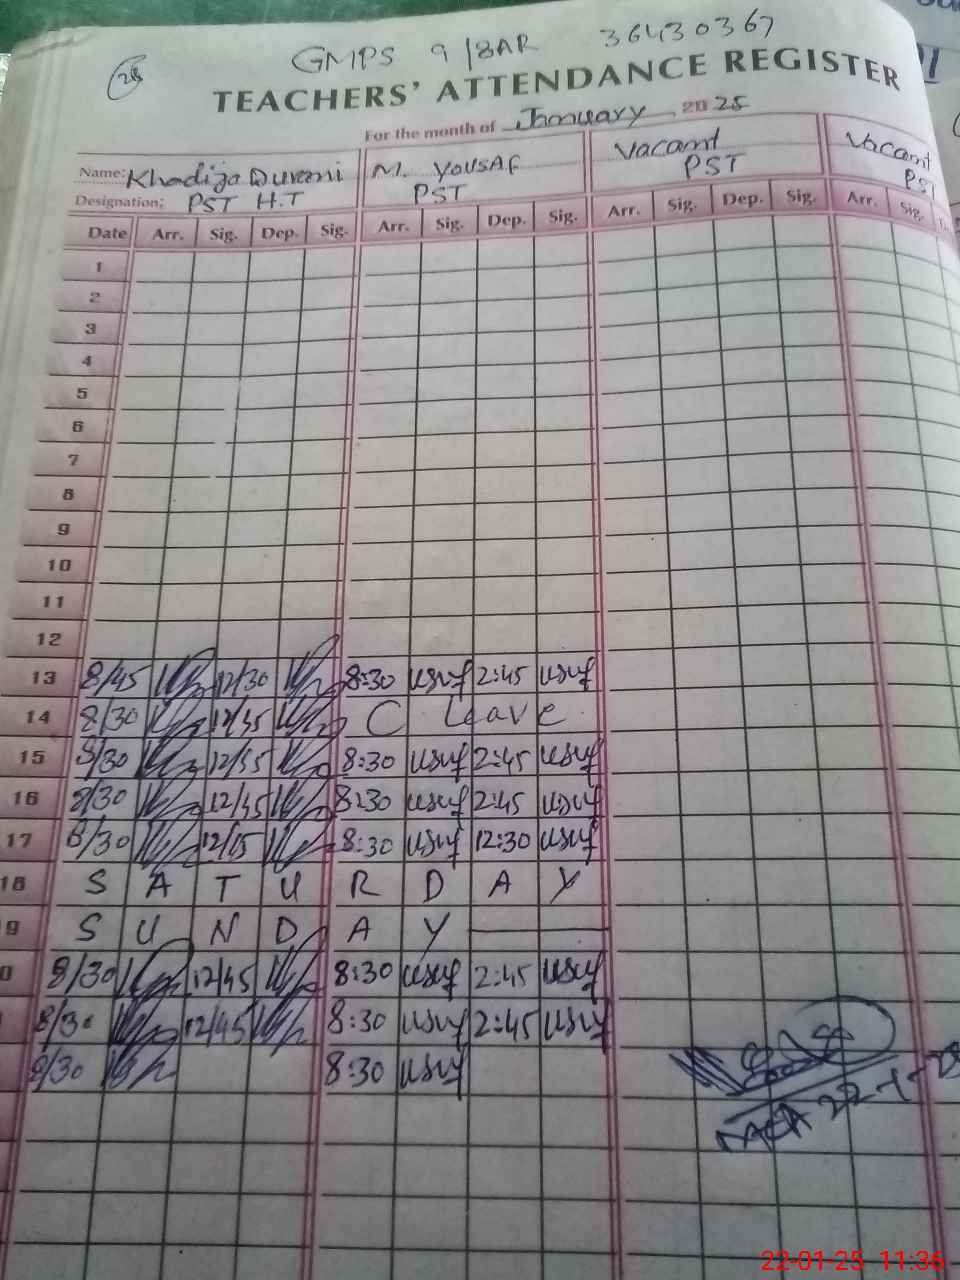 28
GMPS 9/8AR 36430367
TEACHERS' ATTENDANCE REGISTER
For the month of January 2025
Name: Khadija Durani M. YOUSAF Vacant Vacant
Designation; PST H.T PST PST PST
Date Arr. Sig. Dep. Sig. Arr. Sig. Dep. Sig. Arr. Sig. Dep. Sig. Arr. Sig.
1
2
3
4
5
6
7
8
9
10
11
12
13 8/45 12/30 8:30 usuf 2:45 usuf
14 8/30 12/45 C Leave
15 8/30 12/45 8:30 usuf 2:45 usuf
16 8/30 12/45 8:30 usuf 2:45 usuf
17 8/30 12/15 8:30 usuf 12:30 usuf
18 S A T U R D A Y
9 S U N D A Y
0 8/30 12/45 8:30 usuf 2:45 usuf
8/30 12/45 8:30 usuf 2:45 usuf
8/30 8:30 usuf
MEA 22-1-25
22-01-25 11:36